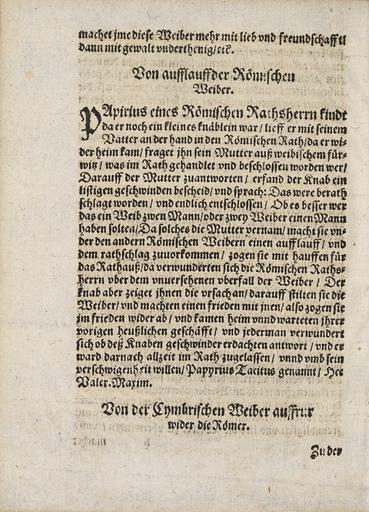 machet jme diese Weiber mehr mit lieb vnd freundschafft
dann mit gewalt vnderthenig/etc.
Von aufflauff der Römischen
Weiber.
PApirius eines Römischen Rathsherrn kindt
da er noch ein kleines knäblein war/ lieff er mit seinem
Vatter an der hand in den Römischen Rath/ da er wi-
der heim kam/ fraget jhn sein Mutter auß weibischem für-
witz/ was im Rath gehandlet vnd beschlossen worden wer/
Darauff der Mutter zuantworten/ erfand der Knab ein
listigen geschwinden bescheid/ vnd sprach: Das were berath
schlagt worden/ vnd endlich entschlossen/ Ob es besser wer
das ein Weib zwen Mann/ oder zwey Weiber einen Mann
haben solten/ Da solches die Mutter vernam/ macht sie vn-
der den andern Römischen Weibern einen aufflauff/ vnd
dem rathschlag zuuorkommen/ zogen sie mit hauffen für
das Rathauß/ da verwunderten sich die Römischen Raths-
herrn vber dem vnuersehenen vberfall der Weiber/ Der
knab aber zeiget jhnen die vrsach an/ darauff stilten sie die
Weiber/ vnd machten einen frieden mit jnen/ also zogen sie
im frieden wider ab/ vnd kamen heim vnnd warteten jhrer
vorigen heußlichen geschäfft/ vnd jederman verwundert
sich ob deß Knaben geschwinder erdachten antwort/ vnd er
ward darnach allzeit im Rath zugelassen/ vnnd vmb sein
verschwigenheit willen/ Papyrius Tacitus genannt/
Valer. Maxim.
Von der Cymbrischen Weiber auffrur
wider die Römer.
Zu der